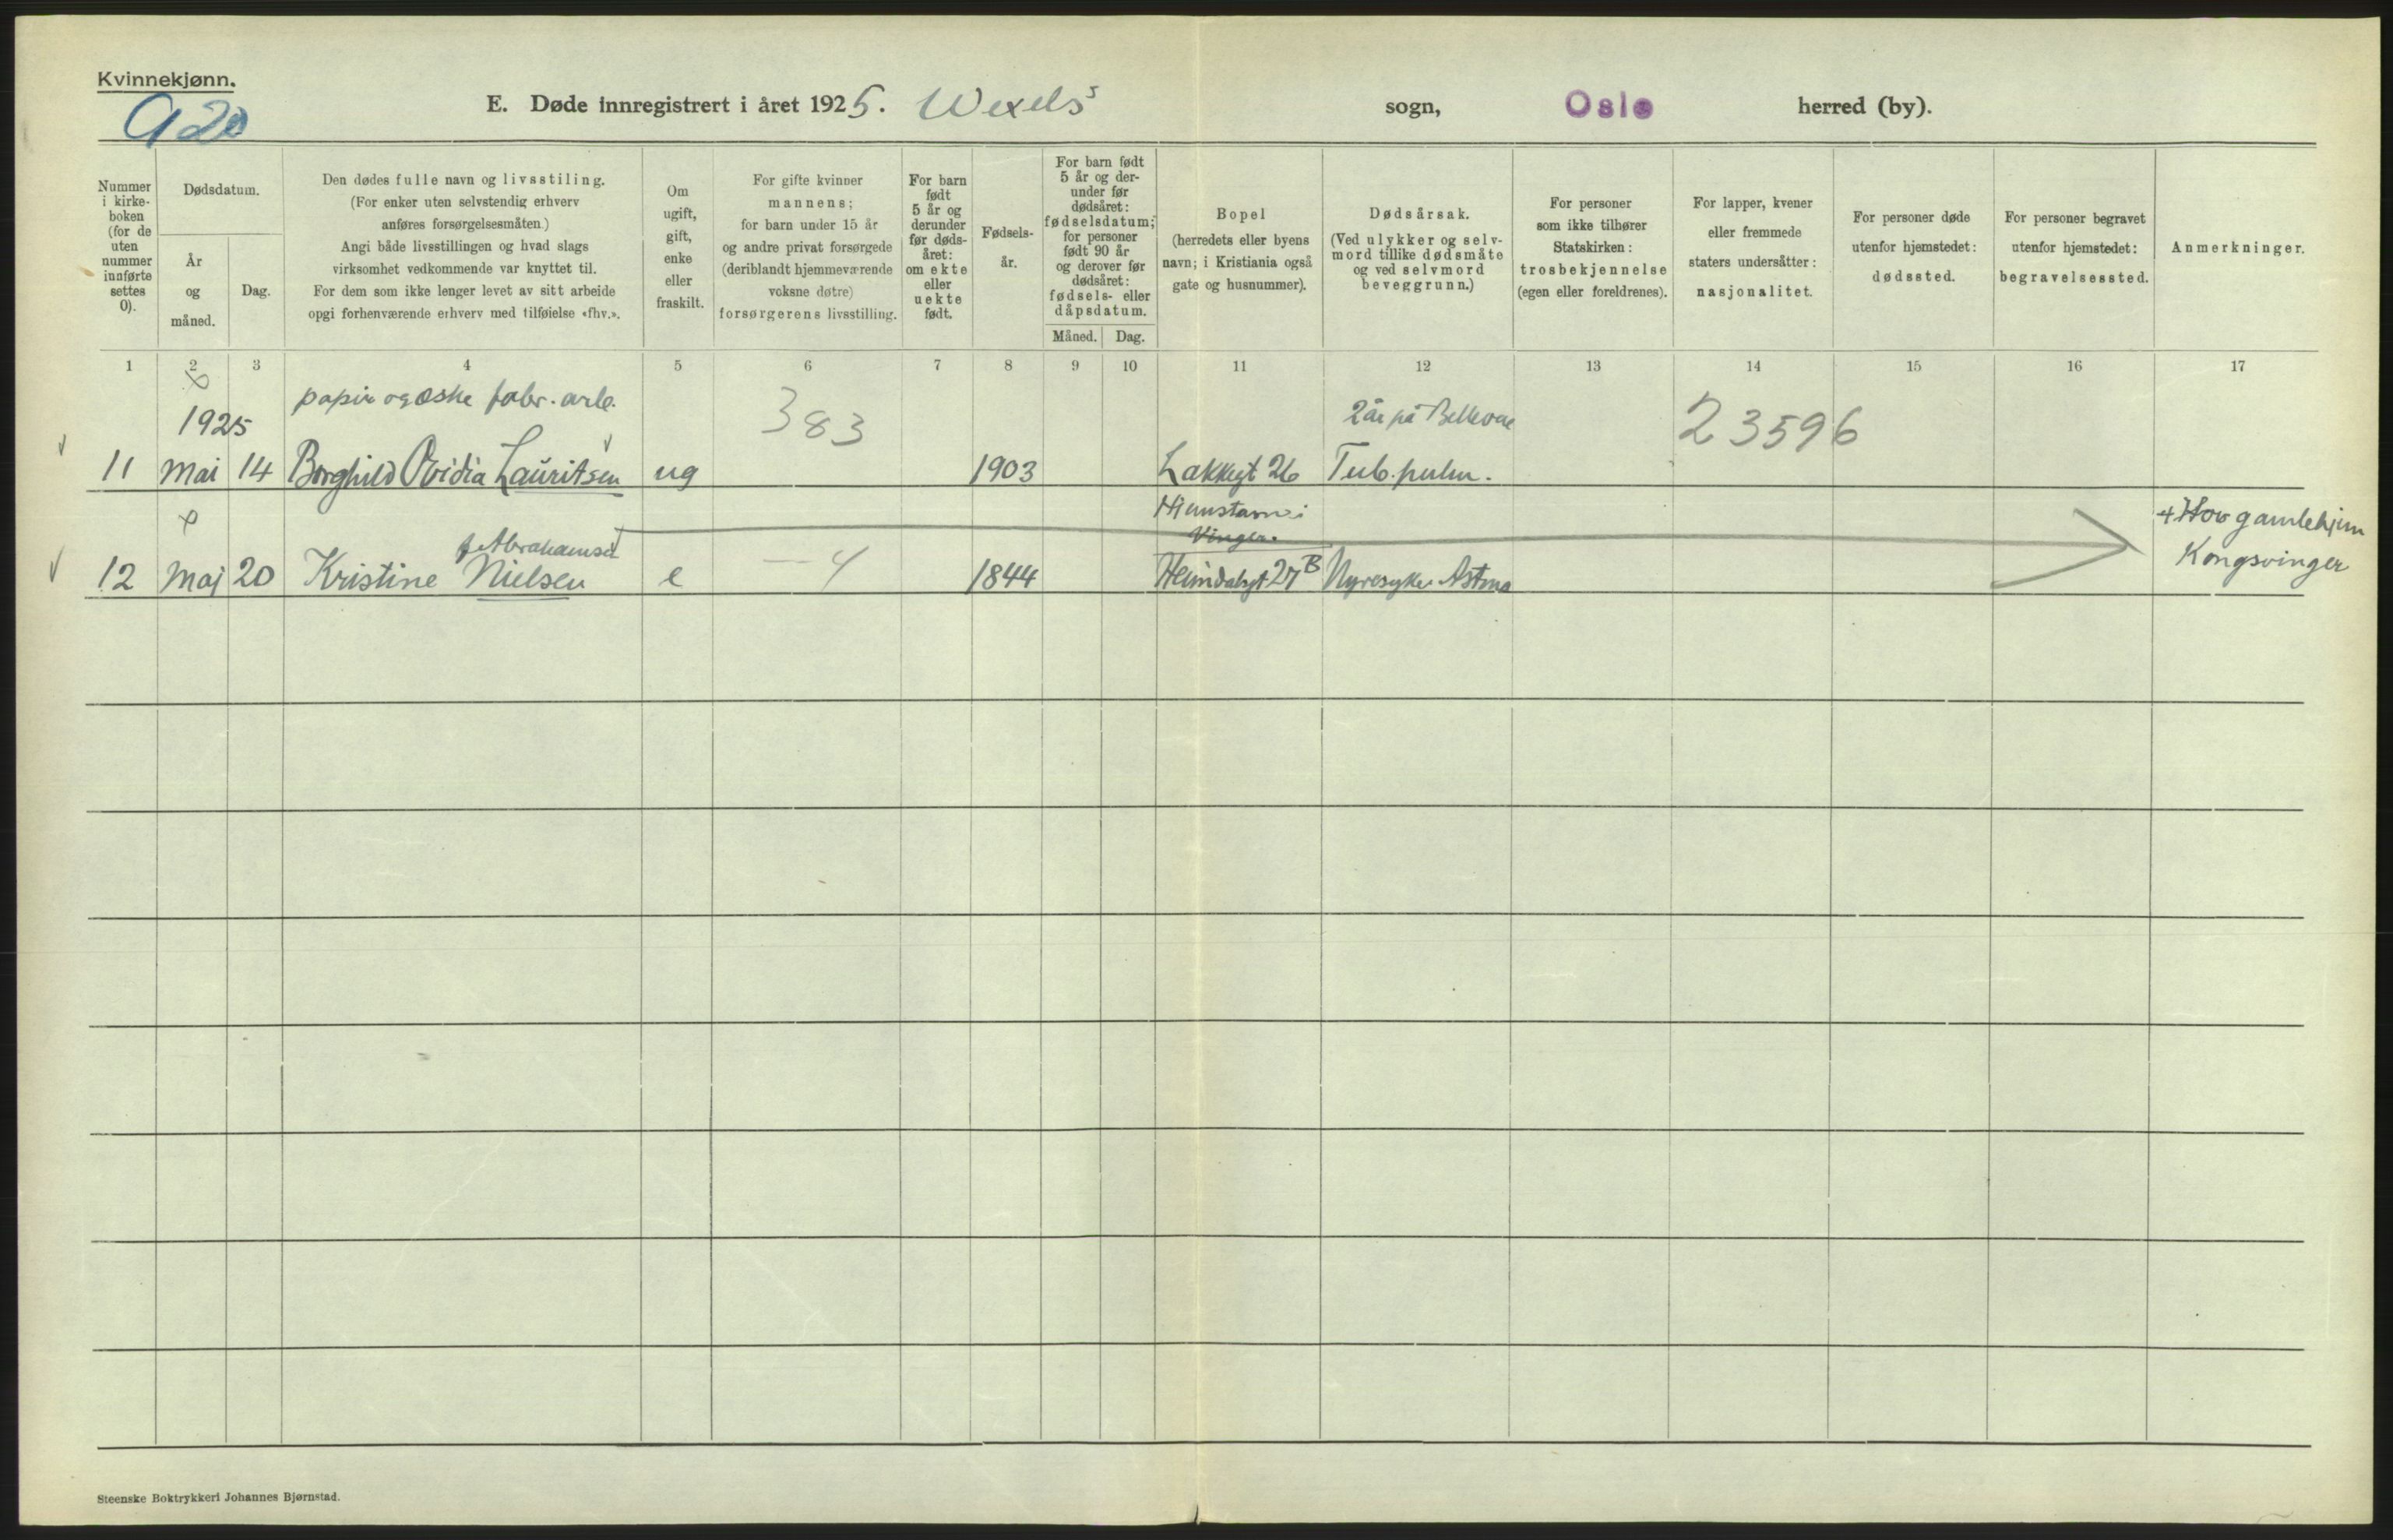 Kvinnekjønn.
920
E. Døde innregistrert i året 1925. Wexels's sogn, Oslo herred (by).
Nummer i kirke-boken (for de uten nummer innførte settes 0).
Dødsdatum.
År og måned.
Dag.
Den dødes fulle navn og livsstiling.
(For enker uten selvstendig erhverv
anføres forsørgelsesmåten.)
Angi både livsstillingen og hvad slags
virksomhet vedkommende var knyttet til.
For dem som ikke lenger levet av sitt arbeide
opgi forhenværende erhverv med tilføielse «fhv.».
Om ugift, gift, enke eller fraskilt.
For gifte kvinner
mannens;
for barn under 15 år
og andre privat forsørgede
(deriblandt hjemmeværende
voksne døtre)
forsørgerens livsstilling.
For barn født 5 år og derunder før døds-året: om ekte eller uekte født.
Fødsels-år.
For barn født 5 år og der-under før dødsåret: fødselsdatum; for personer født 90 år og derover før dødsåret: fødsels- eller dåpsdatum.
Måned. Dag.
Bopel
(herredets eller byens
navn; i Kristiania også
gate og husnummer).
Dødsårsak.
(Ved ulykker og selv-
mord tillike dødsmåte
og ved selvmord
beveggrunn.)
For personer
som ikke tilhører
Statskirken:
trosbekjennelse
(egen eller foreldrenes).
For lapper, kvener
eller fremmede
staters undersåtter:
nasjonalitet.
For personer døde
utenfor hjemstedet:
dødssted.
For personer begravet
utenfor hjemstedet:
begravelsessted.
Anmerkninger.
1 2 3 4 5 6 7 8 9 10 11 12 13 14 15 16 17
papir og æske fabr. arb.
1925
383
2 år på Bellevue
23596
11 Mai 14 Borghild Ovidia Lauritsen ug 1903 Lakkegt 26 Tub. pulm.
Hjemstavn i
Vinger.
+ Hov gamlehjem
Kongsvinger
f. Abrahamsd
12 Maj 20 Kristine Nielsen e — 4 1844 Heimdalsgt 27B Nyresyke Astma
Steenske Boktrykkeri Johannes Bjørnstad.